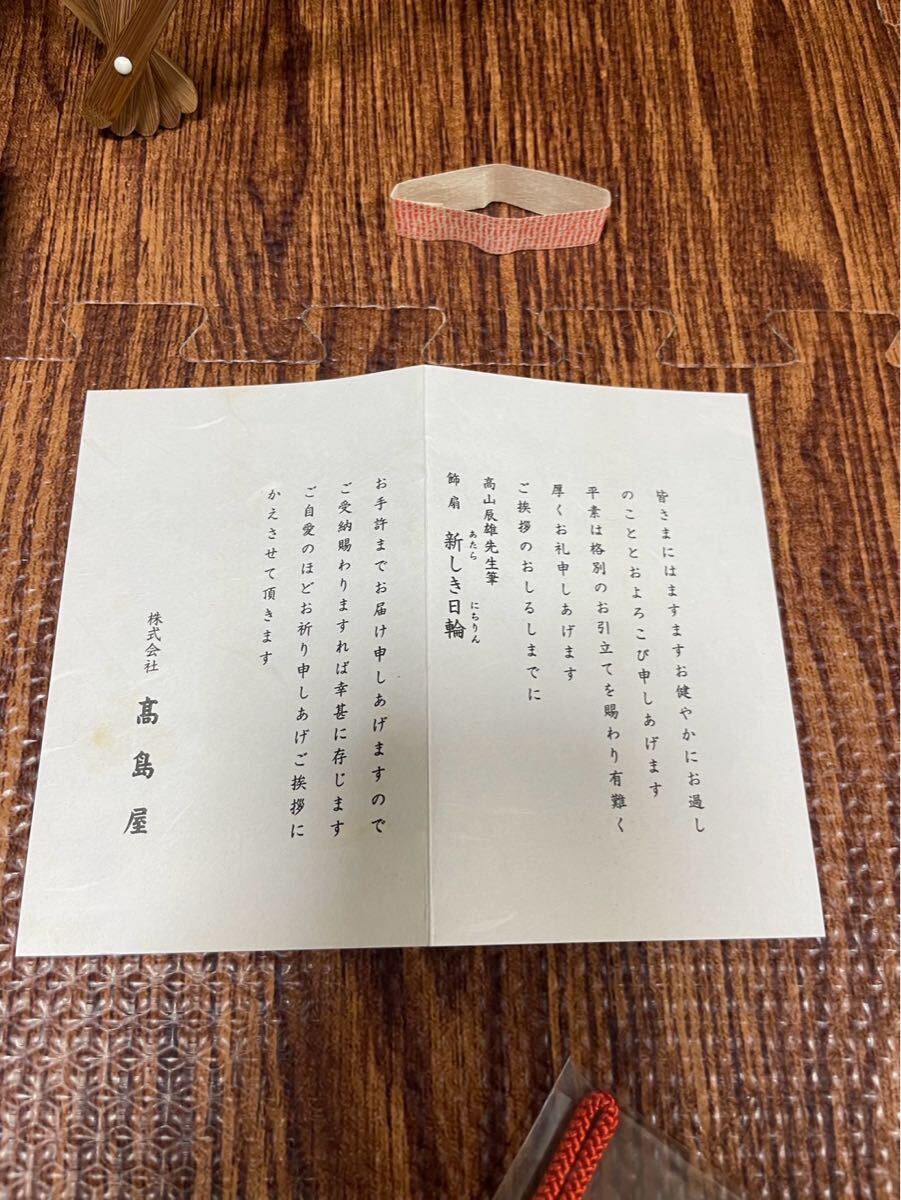 皆さまにはますますお健やかにお過し
のこととおよろこび申しあげます
平素は格別のお引立てを賜わり有難く
厚くお礼申しあげます
ご挨拶のおしるしまでに
高山辰雄先生筆
飾扇 新しき日輪
あたら にちりん
お手許までお届け申しあげますので
ご受納賜わりますれば幸甚に存じます
ご自愛のほどお祈り申しあげご挨拶に
かえさせて頂きます
株式会社 髙島屋